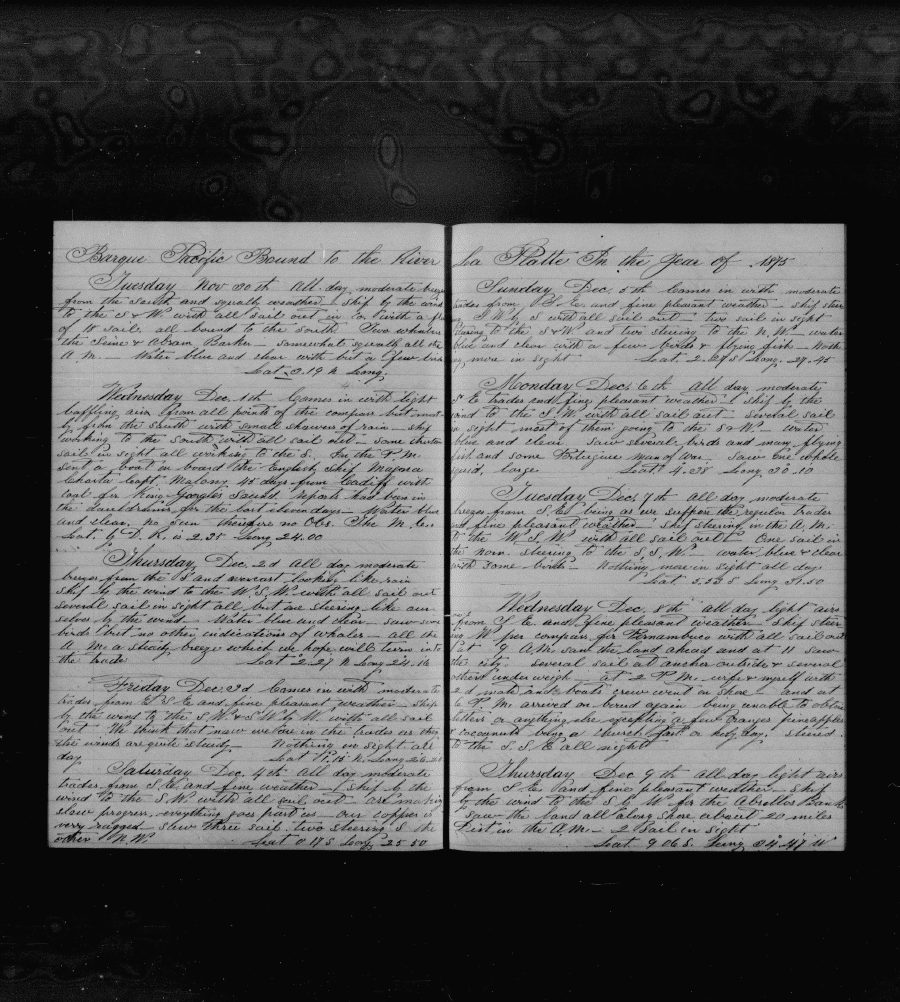 Barque Pacific Bound to the River
Tuesday Nov 30th All day moderate breeze
from the South and squally weather - ship by the wind
to the S & W with all sail out in Co with a fleet
of 18 sail all bound to the south Two whalers
the Seine & Abram Barker - somewhat squally all the
A M. - Water blue and clear with but a few birds
Lat 3.19 N Long.
Wednesday Dec. 1th Comes in with light
baffling airs from all points of the compass but most-
ly from the South with small showers of rain - ship
working to the south with all sail out - some thirteen
sail in sight all working to the S. In the P M.
sent a boat on board the English ship Magna
Charta Capt Malony 45 days from Cardiff with
coal for King Georges Sound reports had been in
the doldrums for the last eleven days - Water blue
and clear, no sun therefore no Obs. The M. Co.
Lat. by D. R. is 2.35 Long 24.00
Thursday Dec. 2d All day moderate
breezes from the S and overcast looking like rain
ship by the wind to the W.S.W. with all sail out
several sail in sight all but are steering like our
selves by the wind - Water blue and clear - saw some
birds but no other indications of whales - all the
A M. a steady breeze which we hope will turn into
the trades Lat 2.27 N Long 24.16
Friday Dec. 3d Comes in with moderate
trades from E S E and fine pleasant weather - ship
by the wind to the S.W. & S.W by W. with all sail
out We think that now we are in the trades as
the winds are quite steady - Nothing in sight all
day. Lat 1.15 N. Long 25.25
Saturday Dec. 4th All day moderate
trades from S.E. and fine weather - ship by the
wind to the S.W. with all sail out are making
slow progress, everything goes past us - our copper is
very ragged - saw three sail two steering S the
other N.W. Lat 0 17 S Long 25 50
La Platte In the Year of 1875
Sunday Dec. 5th Comes in with moderate
trades from S E. and fine pleasant weather - ship steer
S W by S with all sail out - two sail in sight
steering to the S & W and two steering to the N.W. water
blue and clear with a few birds & flying fish - Noth
ing more in sight Lat 2.27 S Long. 27.45
Monday Dec. 6th All day moderate
S E trades and fine pleasant weather ship by the
wind to the S.W. with all sail out - several sail
in sight most of them going to the S & W. - water
blue and clear saw several birds and many flying
fish and some Portugese man of war. saw one whole
squid, large. Lat 4.28 Long 30.10
Tuesday Dec. 7th All day moderate
breezes from S.E. being as we suppose the regular trades
and fine pleasant weather - ship steering in the A.M.
to the W S.W. with all sail out - One sail in
the morn. steering to the S.S.W. - water blue & clear
with some birds - Nothing more in sight all day
Lat 5,53 S Long 31.50
Wednesday Dec. 8th all day light airs
from S E. and fine pleasant weather - ship steer
ing W per compass for Pernambuco with all sail out
at 9 A.M. saw the land ahead and at 11 saw
the city. several sail at anchor outside & several
others underweigh. - at 2 P.M. wife & myself with
2d mate and boats crew went on shore - and at
6 P.M. arrived on board again being unable to obtain
letters or anything else excepting a few oranges pineapples
& cocoanuts being a church fast or holy day. steered
to the S.S.E all night
Thursday Dec 9th all day light airs
from S E. and fine pleasant weather - ship
by the wind to the S by W for the Abrolhos Bank
saw the land all along shore about 20 miles
Dist in the A.M. - 2 Sail in sight
Lat. 9 06 S. Long 34.47 W